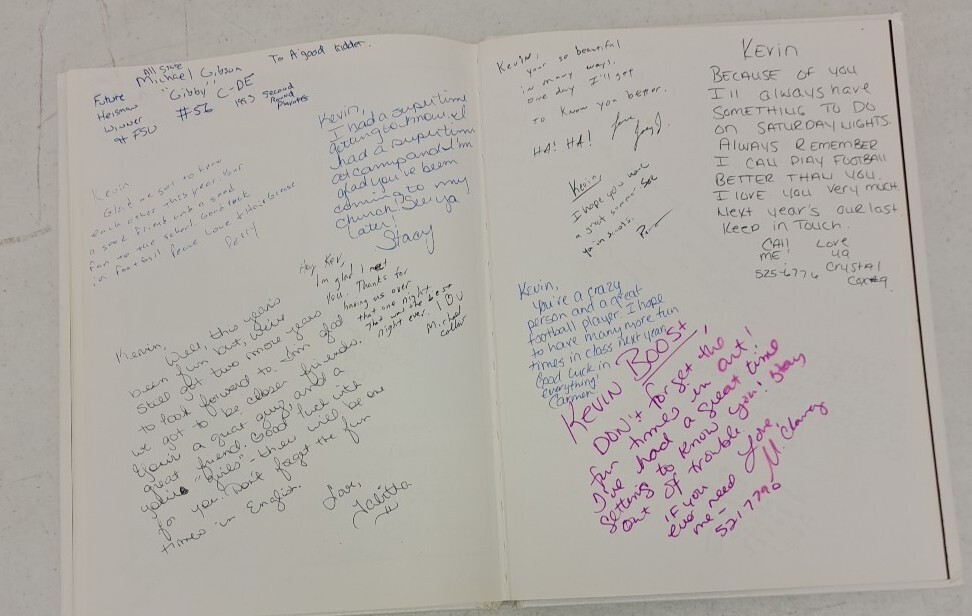 All State
Michael Gibson
"Gibby" C-DE
#56
1993 Second
Round
Playoffs
Future
Heisman
Winner
at FSU
To A good kidder.
Kevin,
I had a super time
getting to know. I
had a super time
at camp and I'm
glad you've been
coming to my
church. See ya
later.
Stacy
Kevin
Glad we got to know
each other this year. Your
a good friend and a good
to the school. Good luck
in football. Peace Love & Hair Grease
Hey Kev,
I'm glad I met
You. Thanks for
having us over
that one night.
That was the best
night ever. I ♡ U
Michael
Kevin,
Well, this year's
been fun but, we've
still got two more years
to look forward to. I'm glad
we got to be closer friends.
Your a great guy, and a
great friend. Good luck with
your "girls" - there will be one
for you. Don't forget the fun
times in English.
Love,
Talitha
Kevin,
your so beautiful
in many ways.
one day I'll get
to know you better.
HA! HA! Love
Kevin
I hope you have
a great summer
Kevin
BECAUSE OF YOU
I'll always have
SOMETHING TO DO
ON SATURDAY NIGHTS.
ALWAYS REMEMBER
I CAN PLAY FOOTBALL
BETTER THAN YOU.
I LOVE YOU VERY MUCH.
Next year's our last
Keep in Touch.
CAll
ME!
525-6776
Love
ya
Crystal
Cox
Kevin,
You're a crazy
person and a great
football player. I hope
to have many more fun
times in class next year.
Good luck in
everything!
Carmen
KEVIN BOOST!
DON'T forget the
fun times in art!
I've had a great time
getting to know you! Stay
out of trouble.
if you
ever need
me-
521 7790
Love,
M. Clancy